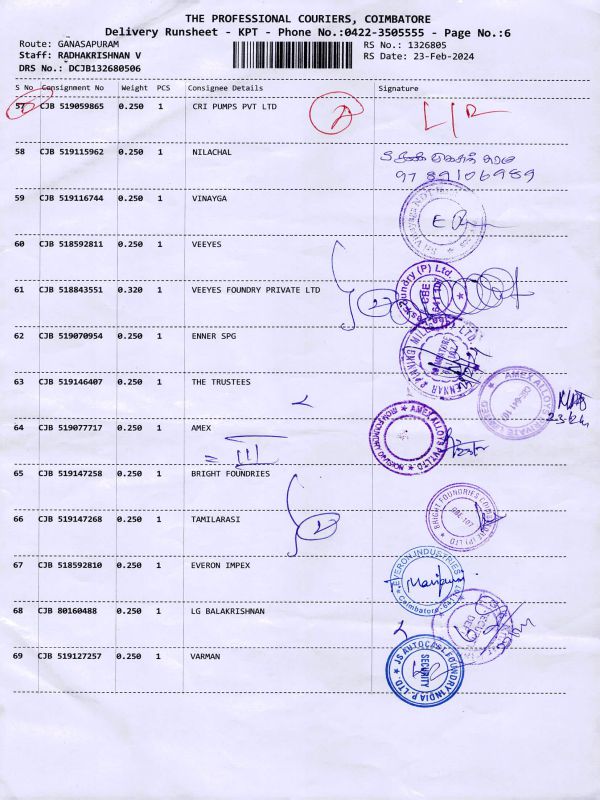 THE PROFESSIONAL COURIERS, COIMBATORE
Delivery Runsheet - KPT - Phone No.:0422-3505555 - Page No.:6
Route: GANASAPURAM
RS No.: 1326805
Staff: RADHAKRISHNAN V
RS Date: 23-Feb-2024
DRS No.: DCJB132680506
S No Consignment No Weight PCS Consignee Details Signature
57 CJB 519059865 0.250 1 CRI PUMPS PVT LTD
58 CJB 519115962 0.250 1 NILACHAL
9789106989
59 CJB 519116744 0.250 1 VINAYGA
60 CJB 518592811 0.250 1 VEEYES
61 CJB 518843551 0.320 1 VEEYES FOUNDRY PRIVATE LTD
62 CJB 519070954 0.250 1 ENNER SPG
63 CJB 519146407 0.250 1 THE TRUSTEES
AMEX ALLOYS PRIVATE LIMITED
64 CJB 519077717 0.250 1 AMEX
AMEX ALLOYS PVT LTD
65 CJB 519147258 0.250 1 BRIGHT FOUNDRIES
BRIGHT FOUNDRIES COIMBATORE (P) LTD.
CBE-107
66 CJB 519147268 0.250 1 TAMILARASI
67 CJB 518592810 0.250 1 EVERON IMPEX
EVERON INDUSTRIES
Coimbatore-641 107
68 CJB 80160488 0.250 1 LG BALAKRISHNAN
69 CJB 519127257 0.250 1 VARMAN
JS AUTOCAST FOUNDRY INDIA P. LTD.
SECURITY